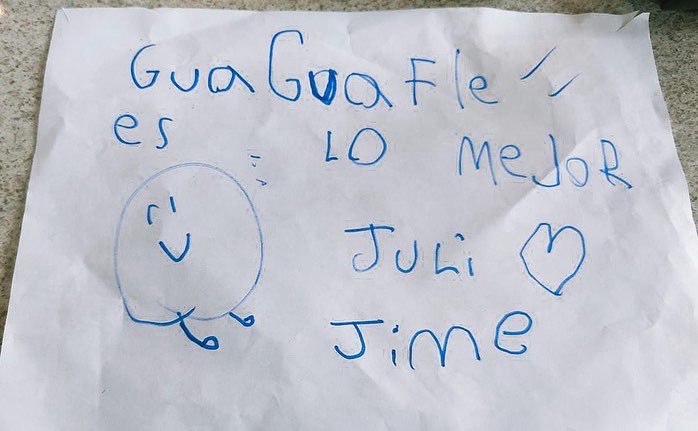 GuaGuaFle
es LO MeJoR
JuLi
JiMe